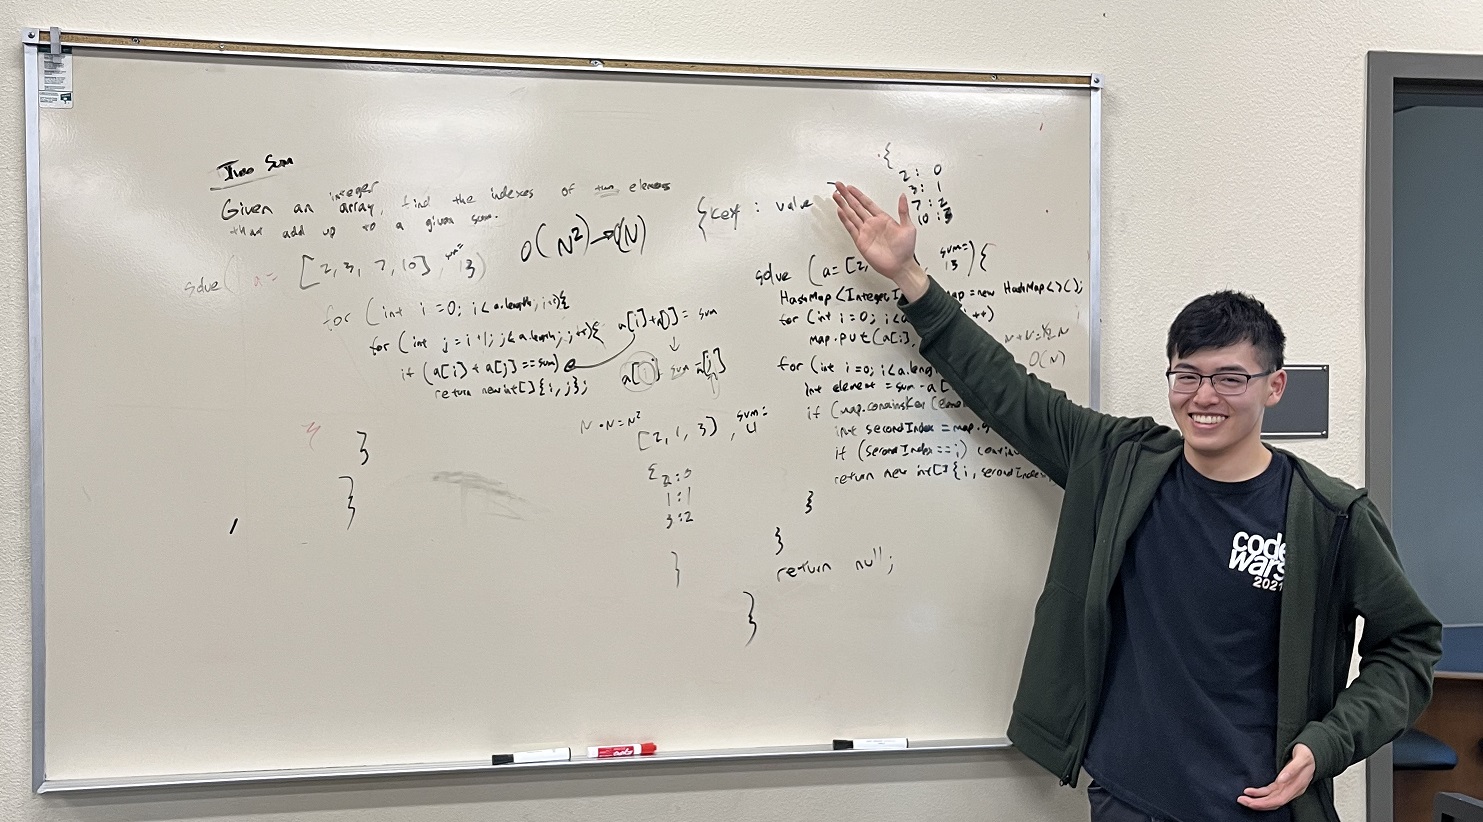 Two Sum
Given an integer array, find the indexes of two elems
that add up to a given sum.
O(N²)→O(N)
solve( a= [2,3,7,10], sum= 13)
for (int i=0; i<a.length; i++){
for (int j=i+1; j<a.length; j++){
if (a[i]+a[j]==sum)
return new int[]{i,j};
}
}
a[i]+a[j]= sum
a[i] sum -a[j]
N·N=N²
[2,1,3], sum=
4
{
2:0
1:1
3:2
}
{key : value
{
2: 0
3: 1
7: 2
10:3
solve (a=[2, sum= 13){
HashMap<Integer I map=new HashMap<>();
for (int i=0; i<a i++)
map.put(a[i],
N+N=½N
O(N)
for (int i=0; i<a.leng
int element = sum-a[
if (map.containsKey(elem
int secondIndex=map.g
if (secondIndex==i) continu
return new int[]{i, secondIndex
}
}
return null;
}
code
wars
2021